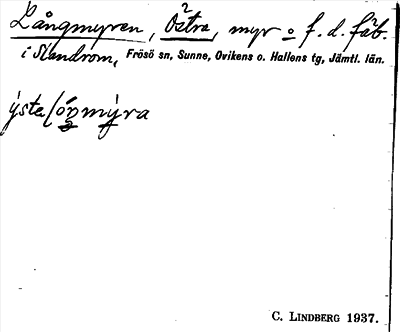 Långmyren, Östra, myr o f. d. fäb.
i Slandrom, Frösö sn, Sunne, Ovikens o. Hallens tg, Jämtl. län.
ýste lóŋmýra
C. LINDBERG 1937.